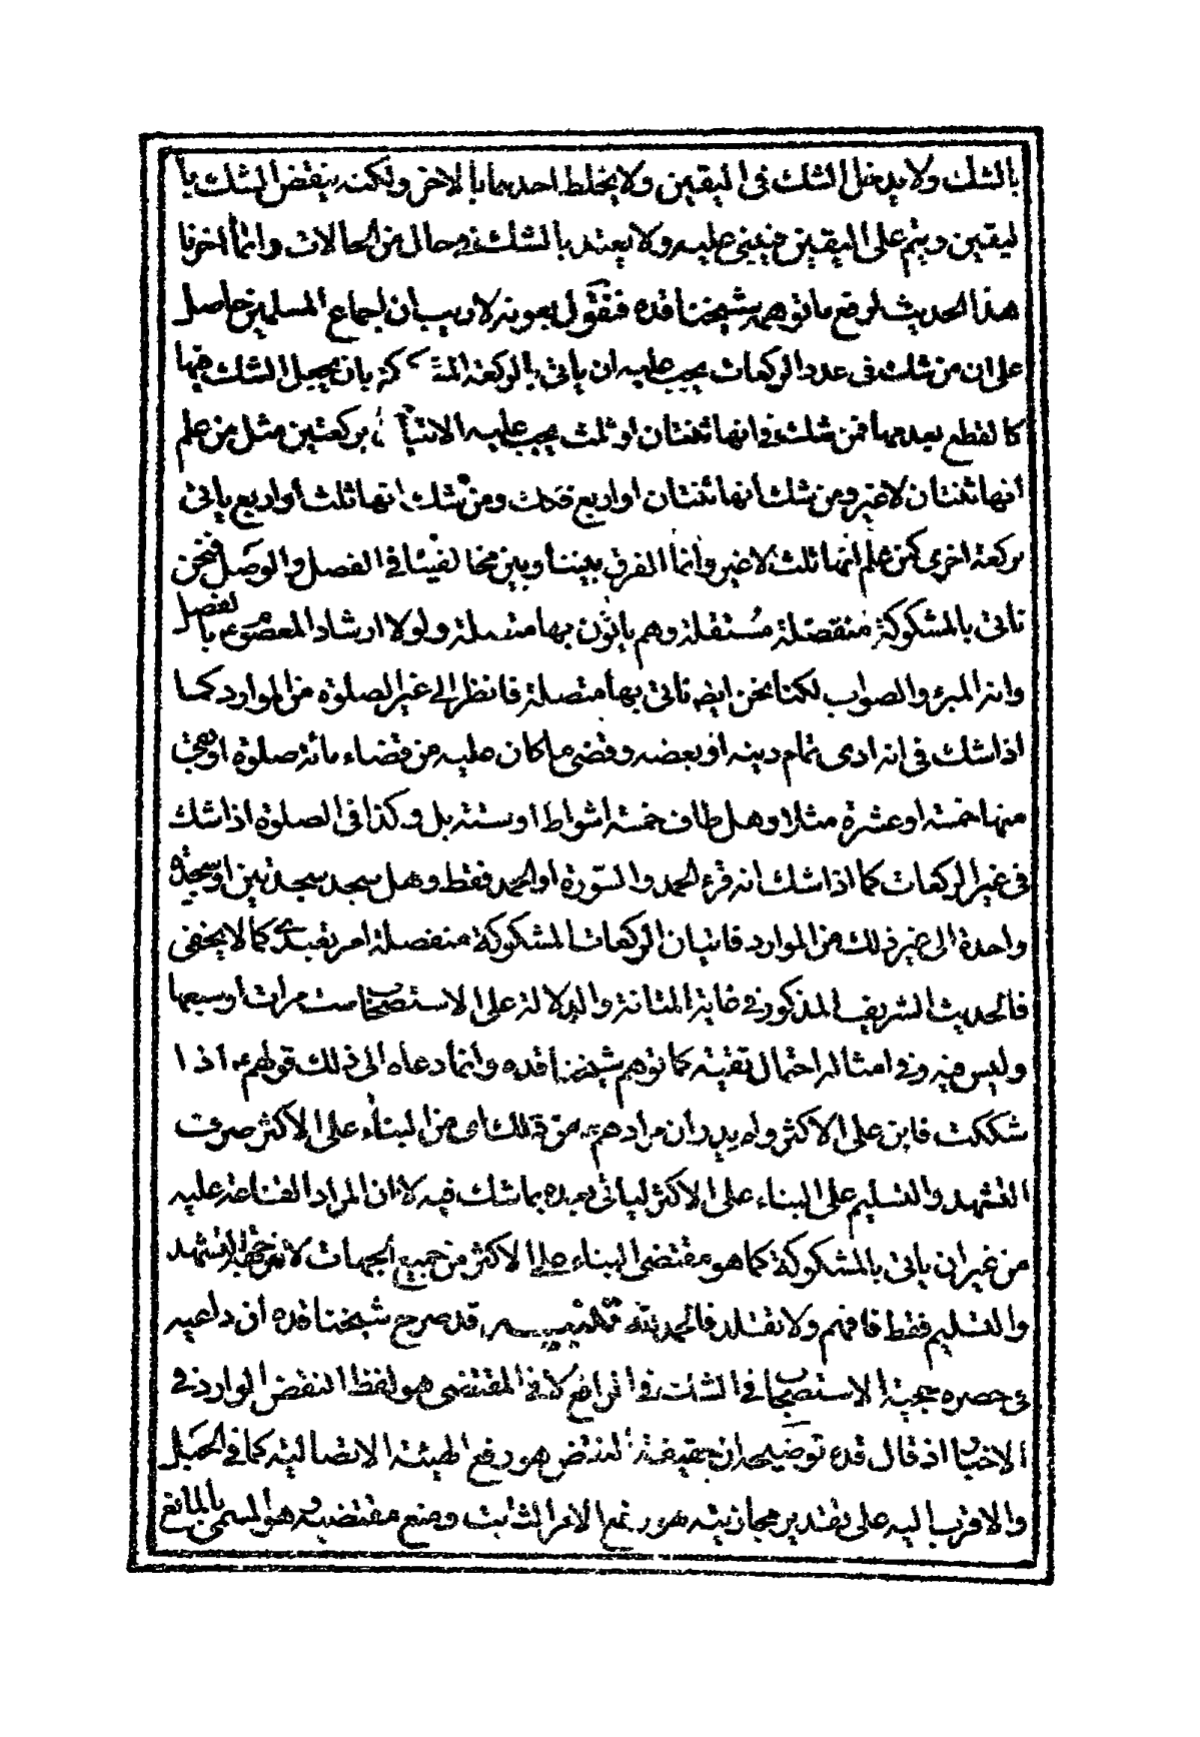 بالشك ولا يدخل الشك فى اليقين ولا يخلط احدهما بالاخر ولكنه ينقض الشك با
ليقين ويتم على اليقين فيبنى عليه ولا يعتد بالشك فى حال من الحالات وانما اخرنا
هذا الحديث لرفع ما توهمه شيخنا قده فنقول بعونه لا ريب ان اجماع المسلمين حاصل
على ان من شك فى عدد الركعات يجب عليه ان ياتى بالركعة المشكوكة بان يجعل الشك فيها
كالقطع بعدمها فمن شك فى انها ثنتان او ثلث يجب عليه الاتيان بركعتين مثل من علم
انها ثنتان لا غير ومن شك انها ثنتان او اربع فكذلك ومن شك انها ثلث او اربع ياتى
بركعة اخرى كمن علم انها ثلث لا غير وانما الفرق بيننا وبين مخالفينا فى الفصل والوصل فنحن
ناتى بالمشكوكة منفصلة مستقلة وهم ياتون بها متصلة ولولا ارشاد المعصوم ع بالفصل
وانه المبرئ والصواب لكنا نحن ايضا ناتى بها متصلة فانظر الى غير الصلوة من الموارد كما
اذا شك فى انه ادى تمام دينه او بعضه وقضى ما كان عليه من قضاء مائة صلوة او بقى
منها خمسة او عشرة مثلا وهل طاف خمسة اشواط او ستة بل وكذا فى الصلوة اذا شك
فى غير الركعات كما اذا شك انه قرء الحمد والسورة او الحمد فقط وهل سجد سجدتين او سجدة
واحدة الى غير ذلك من الموارد فاتيان الركعات المشكوكة منفصلة امر تعبدى كما لا يخفى
فالحديث الشريف المذكور فى غاية المتانة والدلالة على الاستصحاب ست مرات او سبعها
وليس فيه وفى امثاله احتمال تقية كما توهم شيخنا قده وانما دعاه الى ذلك قولهم ع اذا
شككت فابن على الاكثر ولم يدر ان مرادهم ع من ذلك اى من البناء على الاكثر صرف
التشهد والتسليم على البناء على الاكثر لياتى بعده بما شك فيه لا ان المراد القناعة عليه
من غير ان ياتى بالمشكوكة كما هو مقتضى البناء على الاكثر من جميع الجهات لا من جهة التشهد
والتسليم فقط فافهم ولا تقلد فالحمد لله تنبيه قد صرح شيخنا قده ان داعيه
فى حصره حجية الاستصحاب فى الشك فى الرافع لا فى المقتضى هو لفظ النقض الوارد فى
الاخبار اذ قال قده توضيحه ان حقيقة النقض هو رفع الهيئة الاتصالية كما فى الحبل
والاقرب اليه على تقدير مجازيته هو رفع الامر الثابت ومنع مقتضيه وهو المسمى بالمانع